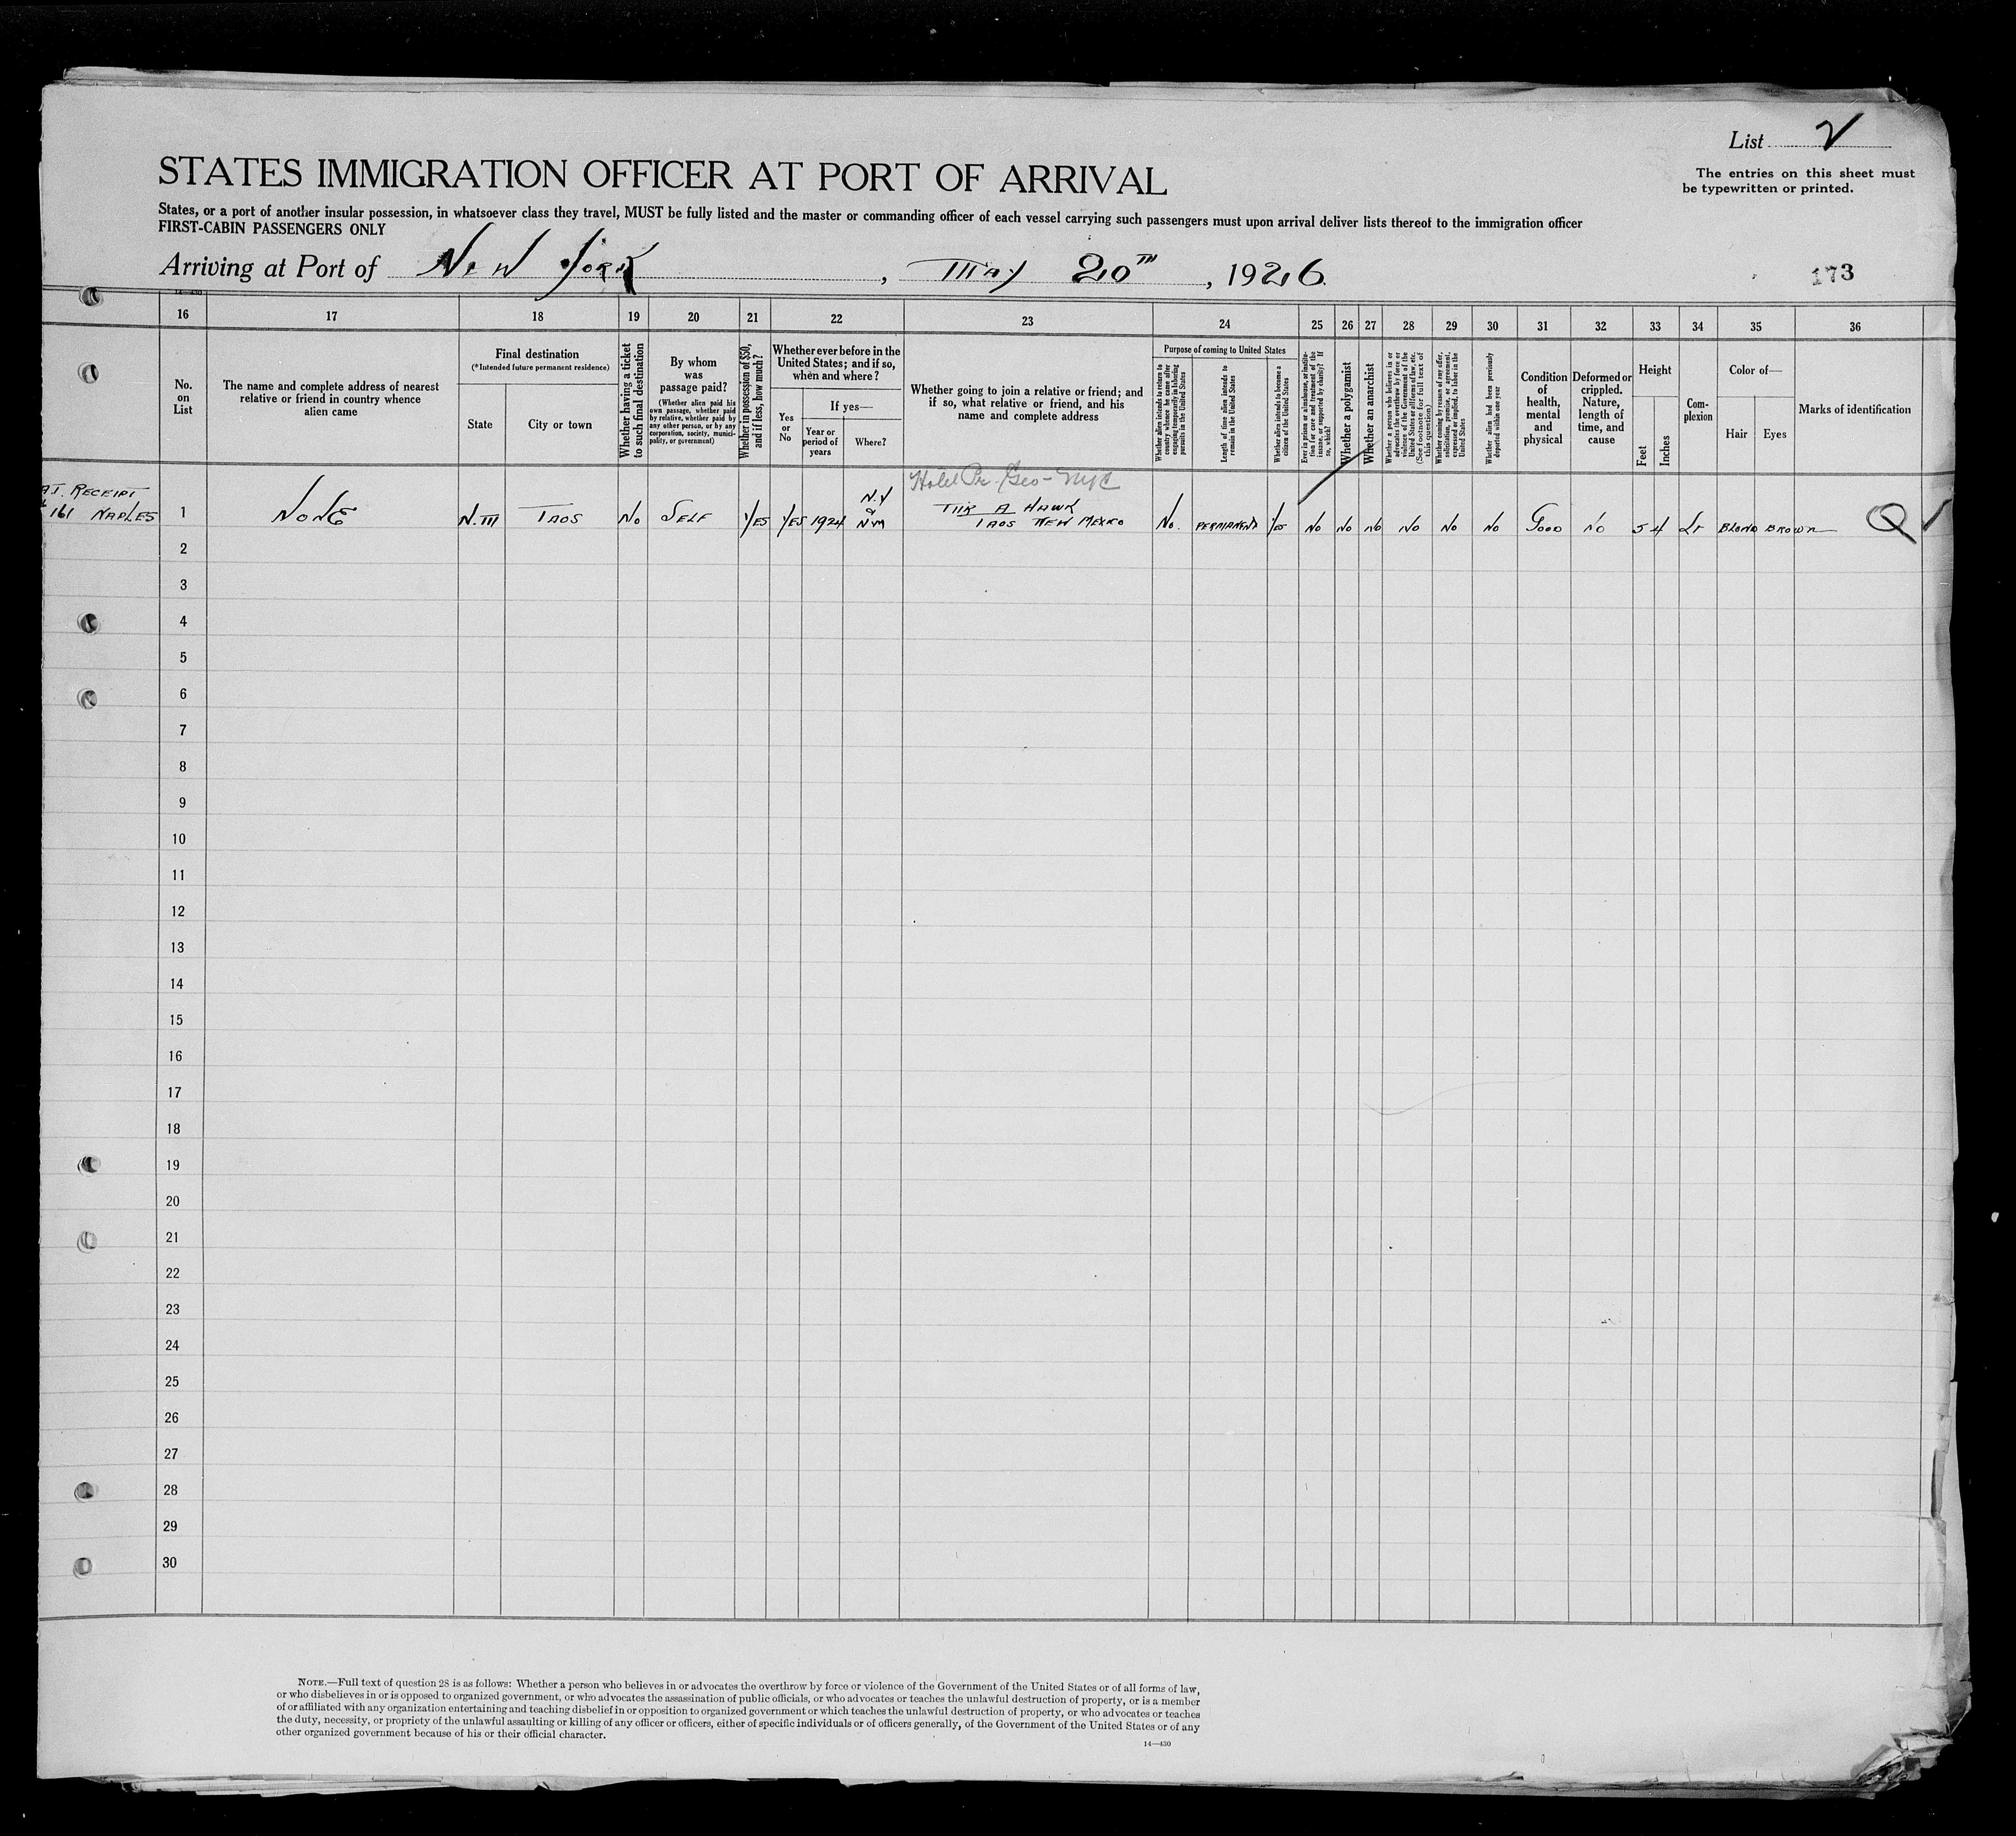 List 2
The entries on this sheet must
be typewritten or printed.
STATES IMMIGRATION OFFICER AT PORT OF ARRIVAL
States, or a port of another insular possession, in whatsoever class they travel, MUST be fully listed and the master or commanding officer of each vessel carrying such passengers must upon arrival deliver lists thereof to the immigration officer
FIRST-CABIN PASSENGERS ONLY
Arriving at Port of New York, May 20TH, 1926
173
14—430
16 17 18 19 20 21 22 23 24 25 26 27 28 29 30 31 32 33 34 35 36
No.
on
List
The name and complete address of nearest
relative or friend in country whence
alien came
Final destination
(*Intended future permanent residence)
State
City or town
Whether having a ticket
to such final destination
By whom
was
passage paid?
(Whether alien paid his
own passage, whether paid
by relative, whether paid by
any other person, or by any
corporation, society, munici-
pality, or government)
Whether in possession of $50,
and if less, how much?
Whether ever before in the
United States; and if so,
when and where?
Yes
or
No
If yes—
Year or
period of
years
Where?
Whether going to join a relative or friend; and
if so, what relative or friend, and his
name and complete address
Purpose of coming to United States
Whether alien intends to return to
country whence he came after
engaging temporarily in laboring
pursuits in the United States
Length of time alien intends to
remain in the United States
Whether alien intends to become a
citizen of the United States
Ever in prison or almshouse, or institu-
tion for care and treatment of the
insane, or supported by charity? If
so, which?
Whether a polygamist
Whether an anarchist
Whether a person who believes in or
advocates the overthrow by force or
violence of the Government of the
United States or all forms of law, etc.
(See footnote for full text of
this question)
Whether coming by reason of any offer,
solicitation, promise, or agreement,
expressed or implied, to labor in the
United States
Whether alien had been previously
deported within one year
Condition
of
health,
mental
and
physical
Deformed or
crippled.
Nature,
length of
time, and
cause
Height
Feet
Inches
Com-
plexion
Color of—
Hair
Eyes
Marks of identification
RECEIPT
161 NAPLES
Hotel NYC
1 NONE N.M TAOS NO SELF YES YES 1924 N.Y & N M A HAWK
TAOS NEW MEXICO NO. PERMANENT YES NO NO NO NO NO NO GOOD NO 5 4 LT BLOND BROWN
2
3
4
5
6
7
8
9
10
11
12
13
14
15
16
17
18
19
20
21
22
23
24
25
26
27
28
29
30
NOTE.—Full text of question 28 is as follows: Whether a person who believes in or advocates the overthrow by force or violence of the Government of the United States or of all forms of law,
or who disbelieves in or is opposed to organized government, or who advocates the assassination of public officials, or who advocates or teaches the unlawful destruction of property, or is a member
of or affiliated with any organization entertaining and teaching disbelief in or opposition to organized government or which teaches the unlawful destruction of property, or who advocates or teaches
the duty, necessity, or propriety of the unlawful assaulting or killing of any officer or officers, either of specific individuals or of officers generally, of the Government of the United States or of any
other organized government because of his or their official character.
14—430